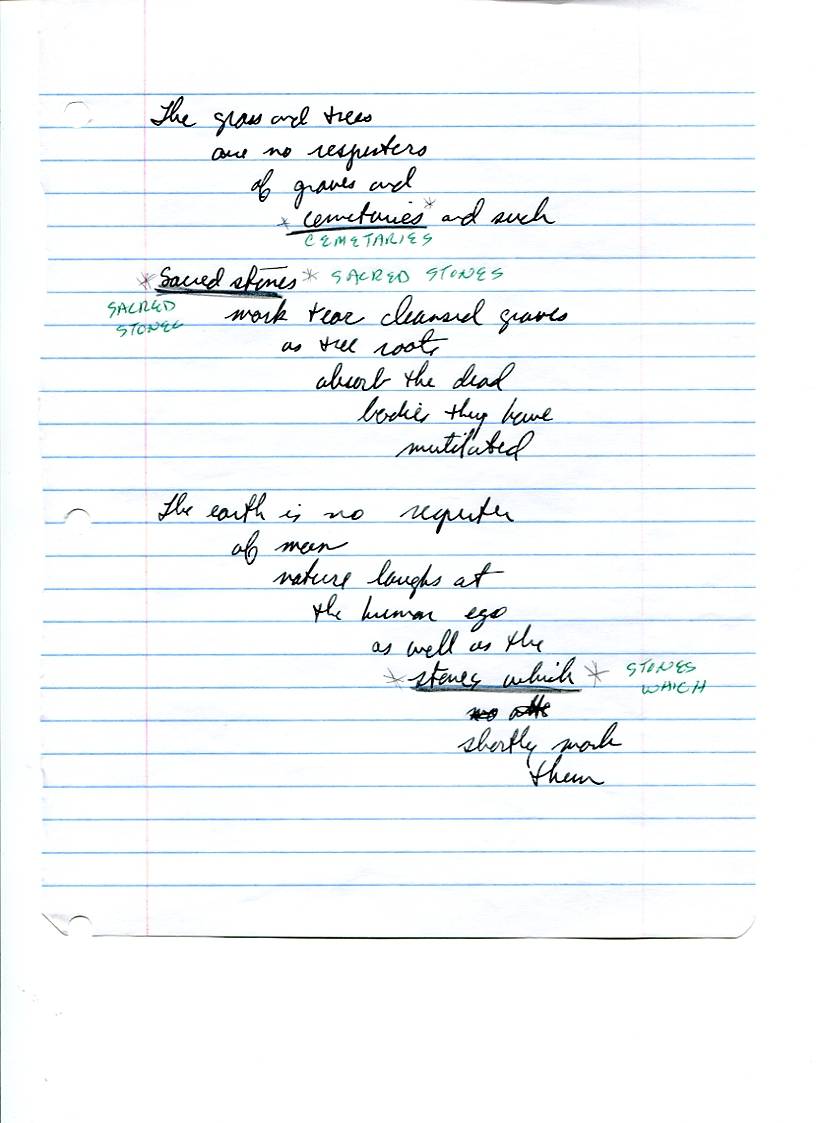 The grass and trees
are no respecters
of graves and
* cemetaries * and such
CEMETARIES
* Sacred stones * SACRED STONES
SACRED
STONES
mark tear cleansed graves
as tree roots
absorb the dead
bodies they have
mutilated
The earth is no respecter
of man
nature laughs at
the human ego
as well as the
* stones which * STONES
WHICH
shortly mark
them